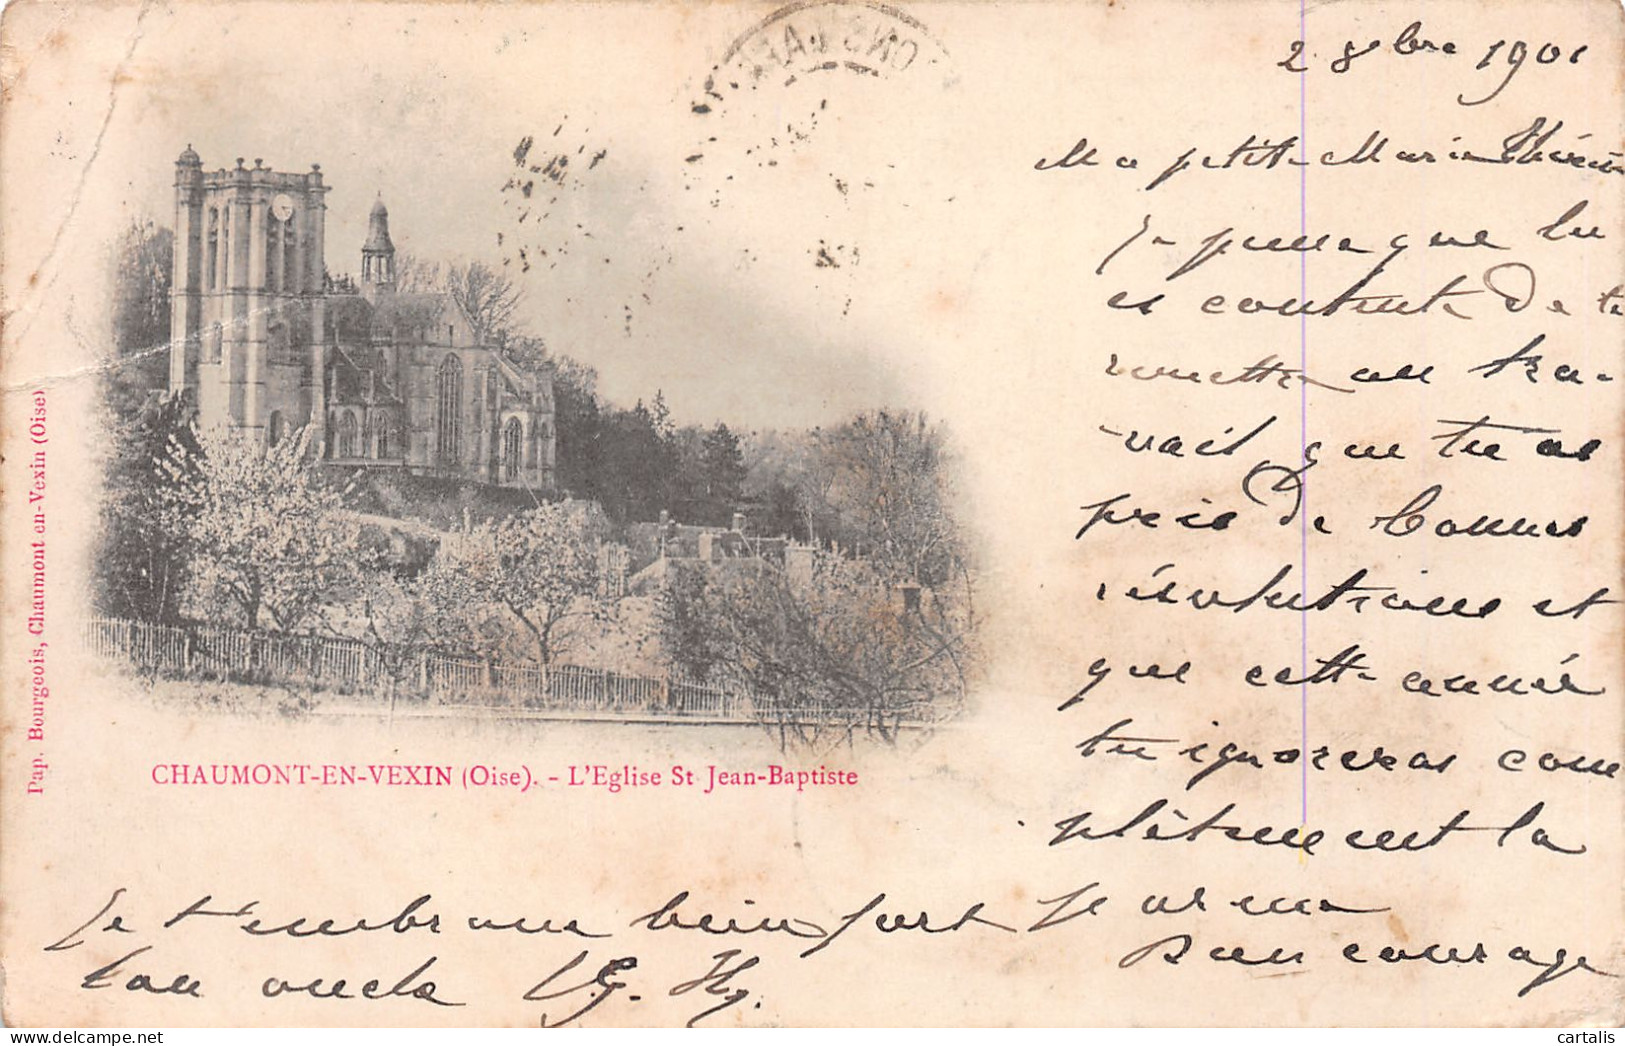 2 8bre 1901
Ma petite Marie Thérèse
Je pense que tu
es contente de te
remettre au tra-
vail, que tu as
pris de bonnes
résolutions et
que cette année
tu ignoreras com
plètement la
Je t'embrasse bien fort
Bon courage
Ton oncle
CHAUMONT-EN-VEXIN (Oise). - L'Eglise St Jean-Baptiste
Pap. Bourgeois, Chaumont en-Vexin (Oise)
delcampe.net
cartalis